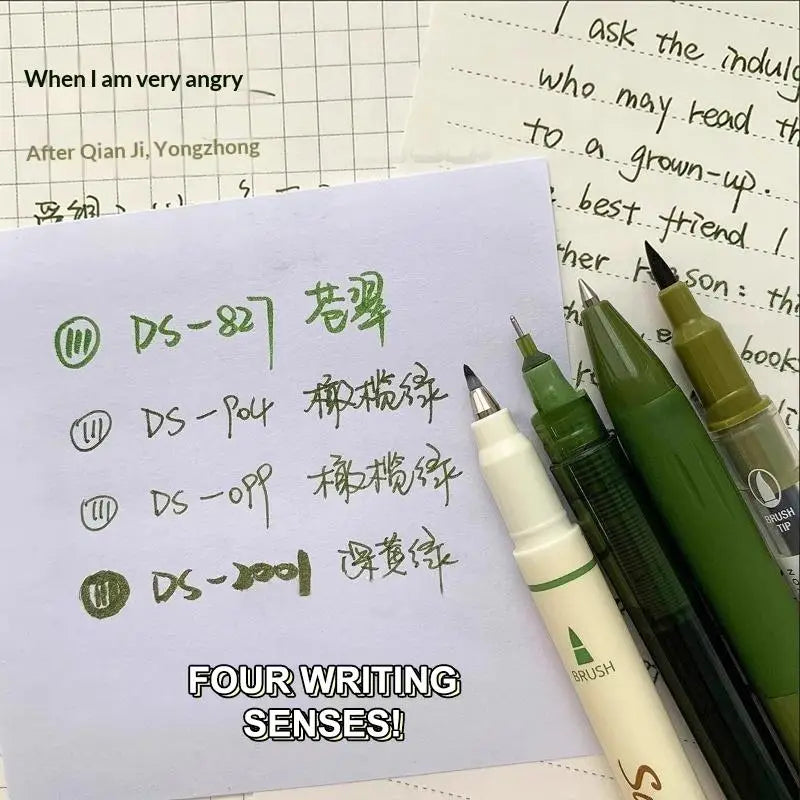 When I am very angry
After Qian Ji, Yongzhong
I ask the indulg
who may read th
to a grown-up.
best friend I
ther reason: thi
book
DS-827 苍翠
DS-904 橄榄绿
DS-099 橄榄绿
DS-2001 深黄绿
BRUSH
TIP
BRUSH
FOUR WRITING
SENSES!